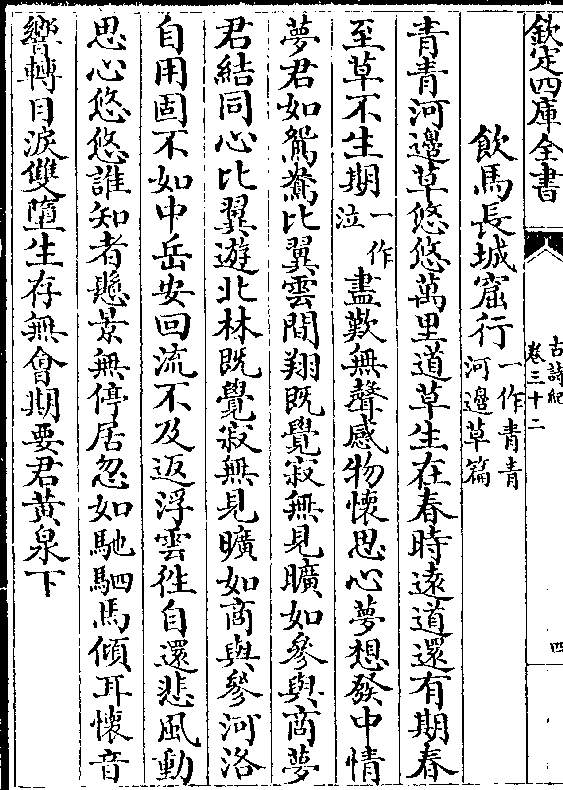 欽定四庫全書
古詩紀
卷三十二
四
飲馬長城窟行一作青青河邊草篇
青青河邊草悠悠萬里道草生在春時遠道還有期春
至草不生期一作泣盡歎無聲感物懷思心夢想發中情
夢君如鴛鴦比翼雲間翔既覺寂無見曠如參與商夢
君結同心比翼遊北林既覺寂無見曠如商與參河洛
自用固不如中岳安回流不及返浮雲往自還悲風動
思心悠悠誰知者懸景無停居忽如馳駟馬傾耳懷音
響轉目淚雙墮生存無會期要君黃泉下